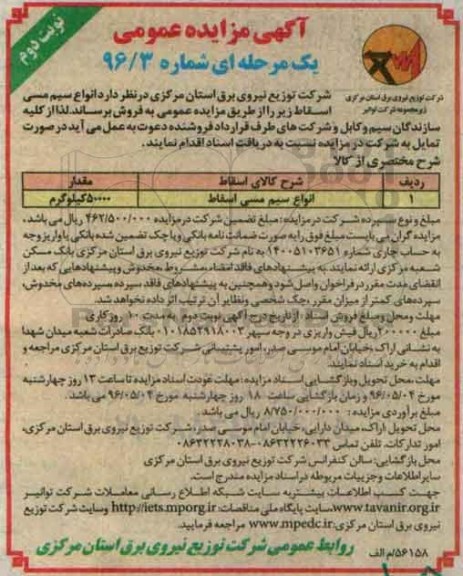 نوبت دوم
آگهی مزایده عمومی
یک مرحله ای شماره ۹۶/۳
شرکت توزیع نیروی برق استان مرکزی
زیرمجموعه شرکت توانیر
شرکت توزیع نیروی برق استان مرکزی در نظر دارد انواع سیم مسی
اسقاط زیر را از طریق مزایده عمومی به فروش برساند. لذا از کلیه
سازندگان سیم و کابل و شرکت های طرف قرارداد فروشنده دعوت به عمل می آید در صورت
تمایل به شرکت در مزایده نسبت به دریافت اسناد اقدام نمایند.
شرح مختصری از کالا
ردیف شرح کالای اسقاط مقدار
۱ انواع سیم مسی اسقاط ۵۰۰۰۰کیلوگرم
مبلغ و نوع سپرده شرکت در مزایده: مبلغ تضمین شرکت در مزایده ۴۶۲/۵۰۰/۰۰۰ ریال می باشد.
مزایده گران می بایست مبلغ فوق را به صورت ضمانت نامه بانکی و یا چک تضمین شده بانکی یا واریز وجه
به حساب جاری شماره ۱۴۰۰۵۱۰۳۶۵۱ به نام شرکت توزیع نیروی برق استان مرکزی بانک مسکن
شعبه مرکزی ارائه نمایند. به پیشنهادهای فاقد امضاء، مشروط، مخدوش و پیشنهادهایی که بعد از
انقضای مدت مقرر در فراخوان واصل شود و همچنین به پیشنهادهای فاقد سپرده، سپرده های مخدوش،
سپرده‌های کمتر از میزان مقرر، چک شخصی و نظایر آن ترتیب اثر داده نخواهد شد.
مهلت و محل و مبلغ فروش اسناد: از تاریخ درج آگهی نوبت دوم به مدت ۱۰ روز کاری
مبلغ ۲۰۰۰۰۰ریال فیش واریزی در وجه سپهر ۰۱۰۱۸۵۲۹۱۸۰۰۳ بانک صادرات شعبه میدان شهدا
به نشانی اراک، خیابان امام موسی صدر، امور پشتیبانی شرکت توزیع برق استان مرکزی مراجعه و
اقدام به خرید اسناد نمایند.
مهلت، محل تحویل و بازگشایی اسناد مزایده: مهلت عودت اسناد مزایده تا ساعت ۱۳ روز چهارشنبه
مورخ ۹۶/۰۵/۰۴ و زمان بازگشایی ساعت ۱۸ روز چهارشنبه مورخ ۹۶/۰۵/۰۴ می باشد.
مبلغ برآوردی مزایده: ۸/۷۵۰/۰۰۰/۰۰۰ ریال می باشد.
محل تحویل: اراک، میدان دارایی، خیابان امام موسی صدر، شرکت توزیع نیروی برق استان مرکزی،
امور تدارکات. تلفن تماس ۰۸۶۳۲۲۲۶۰۳۳-۰۸۶۳۲۲۲۸۰۳۸
محل بازگشایی: سالن کنفرانس شرکت توزیع نیروی برق استان مرکزی
سایر اطلاعات و جزییات مربوطه در اسناد مزایده مندرج است.
جهت کسب اطلاعات بیشتر به سایت شبکه اطلاع رسانی معاملات شرکت توانیر
www.tavanir.org.ir، سایت پایگاه ملی مناقصات: http://iets.mporg.ir وسایت شرکت توزیع
نیروی برق استان مرکزی: www.mpedc.ir مراجعه فرمایید.
۵۶۱۵۸/م الف
روابط عمومی شرکت توزیع نیروی برق استان مرکزی